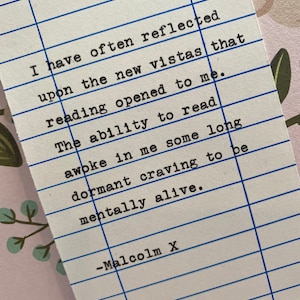 I have often reflected
upon the new vistas that
reading opened to me.
The ability to read
awoke in me some long
dormant craving to be
mentally alive.
-Malcolm X